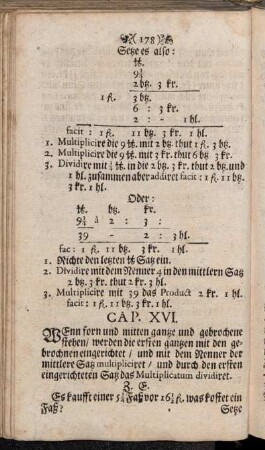 178
Setze es also:
℔.
9¾
2 btz. 3 kr.
1 fl. 3 btz.
6 : 3 kr.
2 : - 1 hl.
facit: 1 fl. 11 btz. 3 kr. 1 hl.
1. Multiplicire die 9 ℔. mit 2 btz. thut 1 fl. 3 btz.
2. Multiplicire die 9 ℔. mit 3 kr. thut 6 btz. 3 kr.
3. Dividire mit ¾ ℔. in die 2 btz. 3 kr. thut 2 btz. und
1 hl. zusammen aber addiret facit: 1 fl. 11 btz.
3 kr. 1 hl.
Oder:
℔. btz. kr.
9¾ à 2 : 3 :
39 - 2 : 3 hl.
fac: 1 fl. 11 btz. 3 kr. 1 hl.
1. Richte den letzten ℔ Satz ein.
2. Dividire mit dem Nenner 4 in den mittlern Satz
2 btz. 3 kr. thut 2 kr. 3 hl.
3. Multiplicire mit 39 das Product 2 kr. 1 hl.
facit: 1 fl. 11 btz. 3 kr. 1 hl.
CAP. XVI.
WEnn forn und mitten gantze und gebrochene
stehen/ werden die ersten gantzen mit den ge-
brochnen eingerichtet/ und mit dem Nenner der
mittlere Satz multipliciret/ und durch den ersten
eingerichteten Satz das Multiplicatum dividiret.
Z. E.
Es kaufft einer 5¾ Faß vor 16½ fl. was kostet ein
Faß? Setze